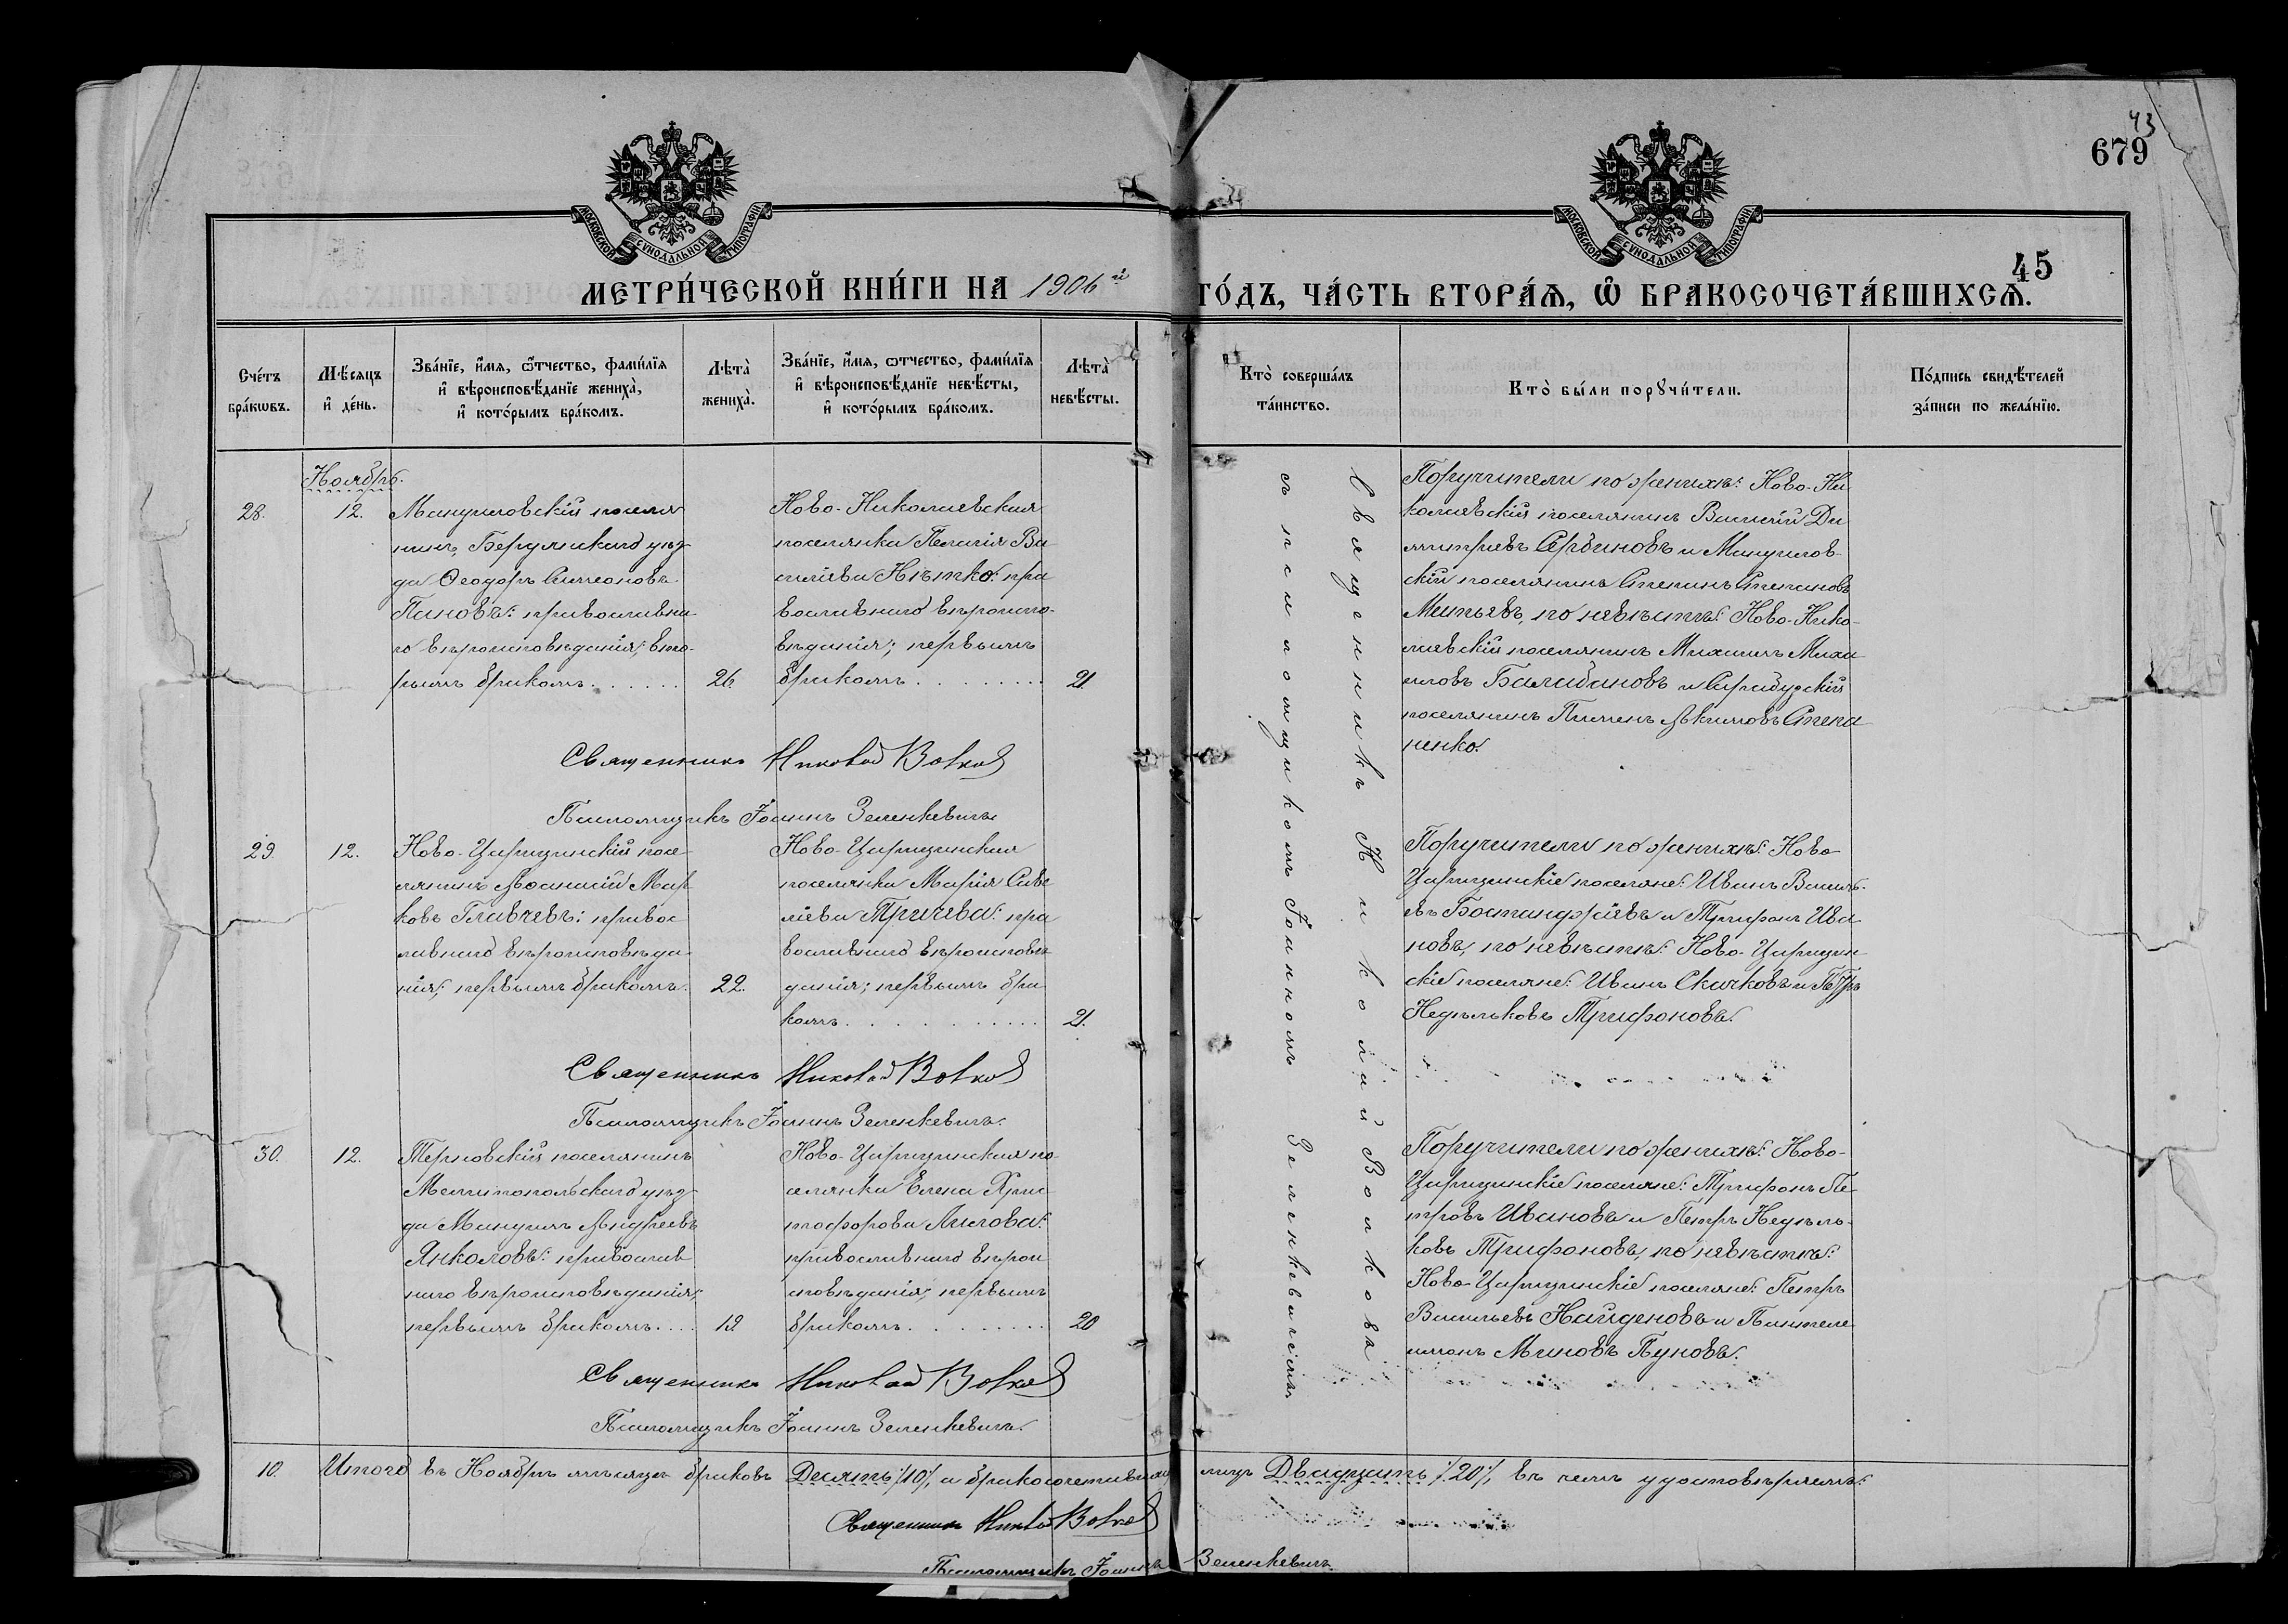 43
679
МОСКОВСКОЙ СѴНОДАЛЬНОЙ ТИПОГРАФІИ.
МОСКОВСКОЙ СѴНОДАЛЬНОЙ ТИПОГРАФІИ.
45
МЕТРИ́ЧЕСКОЙ КНИ́ГИ НА 1906й ГО́ДЪ, ЧА́СТЬ ВТОРА́Ѧ, Ѡ҆ БРАКОСОЧЕТА́ВШИХСѦ.
Сче́тъ
бра́кѡвъ.
Мѣ́сѧцъ
и҆ де́нь.
Зва́нїе, и҆́мѧ, ѻ҆́тчество, фами́лїѧ
и҆ вѣроисповѣ́данїе жениха̀,
и҆ кото́рымъ бра́комъ.
Лѣта̀
жениха̀.
Зва́нїе, и҆́мѧ, ѻ҆́тчество, фами́лїѧ
и҆ вѣроисповѣ́данїе невѣ́сты,
и҆ кото́рымъ бра́комъ.
Лѣта̀
невѣ́сты.
Кто̀ соверша́лъ
та́инство.
Кто̀ бы́ли порꙋчи́тели.
По́дпись свидѣ́телей
за́писи по жела́нїю.
Ноябрь.
28.
12.
Мануиловскій поселя
нинъ, Бердянскаго уѣз
да Ѳеодоръ Симеоновъ
Пановъ: православна
го вѣроисповѣданія; вто-
рымъ бракомъ.
26.
Ново-Николаевская
поселянка Пелагія Ва
силіева Нѣтко: пра
вославнаго вѣроиспо-
вѣданія; первымъ
бракомъ.
21.
Поручители по женихѣ: Ново-Ни
колаевскій поселянинъ Василій Ди
митріевъ Сербиновъ и Мануилов-
скій поселянинъ Степанъ Степановъ
Митьевъ, по невѣстѣ: Ново-Нико-
лаевскій поселянинъ Михаилъ Миха
иловъ Балабановъ и Сарабузскій
поселянинъ Пименъ Акимовъ Степа
ненко.
Священникъ Николай Волков
Псаломщикъ Іоаннъ Зеленкевичъ
29.
12.
Ново-Царицынскій посе
лянинъ Аѳанасій Мар
ковъ Главчевъ: правос
лавнаго вѣроисповѣда
нія; первымъ бракомъ.
22.
Ново-Царицынская
поселянка Марія Саве
ліева Тричева: пра
вославнаго вѣроисповѣ
данія; первымъ бра
комъ.
21.
Поручители по женихѣ: Ново
Царицынскіе поселяне: Иванъ Василь-
евъ Бостанджіевъ и Трифонъ Ива
новъ, по невѣстѣ: Ново-Царицын
скіе поселяне: Иванъ Скачковъ и Петръ
Недѣльковъ Трифоновъ.
Священникъ Николай Волков
Псаломщикъ Іоаннъ Зеленкевичъ.
30.
12.
Терновскій поселянинъ
Мелитопольскаго уѣз
да Мануилъ Андреевъ
Янколовъ: православ
наго вѣроисповѣданія;
первымъ бракомъ.
19.
Ново-Царицынская по-
селянка Елена Хрис
тофорова Лилова:
православнаго вѣрои
сповѣданія; первымъ
бракомъ.
20
Поручители по женихѣ: Ново-
Царицынскіе поселяне: Трифонъ Пе
тровъ Ивановъ и Петръ Недѣль-
ковъ Трифоновъ, по невѣстѣ:
Ново-Царицынскіе поселяне: Петръ
Васильевъ Найденовъ и Пантеле
имонъ Миновъ Пуновъ.
Священникъ Николай Волков
Псаломщикъ Іоаннъ Зеленкевичъ.
Священникъ Николай Волковъ
съ псаломщикомъ Іоанномъ Зеленкевичемъ.
10. Итого въ Ноябрѣ мѣсяцѣ браковъ Десять /10/, а бракосочетавших лицъ Двадцать /20/, въ чемъ удостовѣряемъ:
Священникъ Николай Волков
Псаломщикъ Іоаннъ Зеленкевичъ.